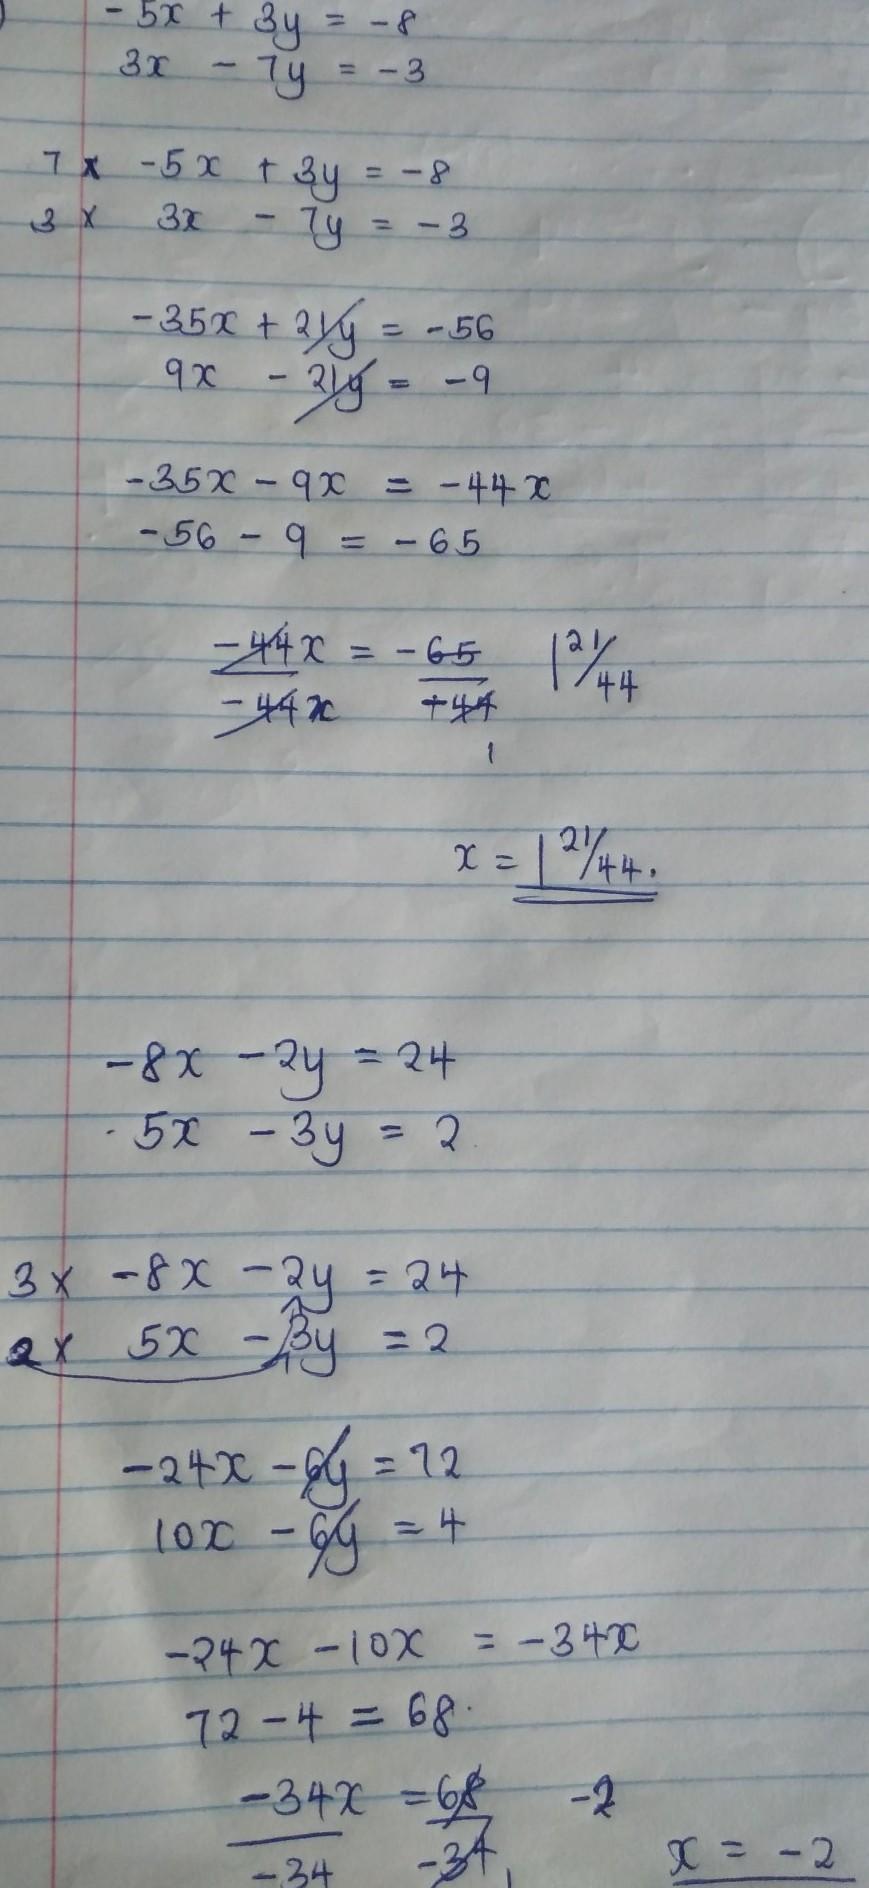 -5x + 3y = -8
3x - 7y = -3
7 x -5x + 3y = -8
3 x 3x - 7y = -3
-35x + 21y = -56
9x - 21y = -9
-35x - 9x = -44x
-56 - 9 = -65
-44x = -65 1 21/44
-44x +44
1
x = 1 21/44.
-8x - 2y = 24
5x - 3y = 2
3x -8x - 2y = 24
2x 5x - 3y = 2
-24x - 6y = 72
10x - 6y = 4
-24x - 10x = -34x
72 - 4 = 68.
-34x = 68 -2
-34 -34 1
x = -2